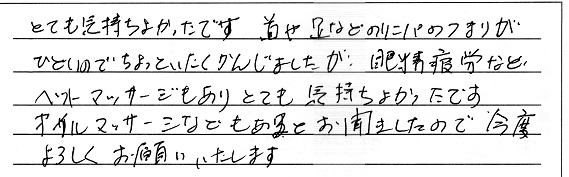 とても気持ちよかったです 首や足などのリンパのつまりが
ひどいのでちょっといたくかんじましたが、眼精疲労など、
ヘットマッサージもありとても気持ちよかったです
オイルマッサージなどもあるとお聞きしましたので今度
よろしくお願いいたします